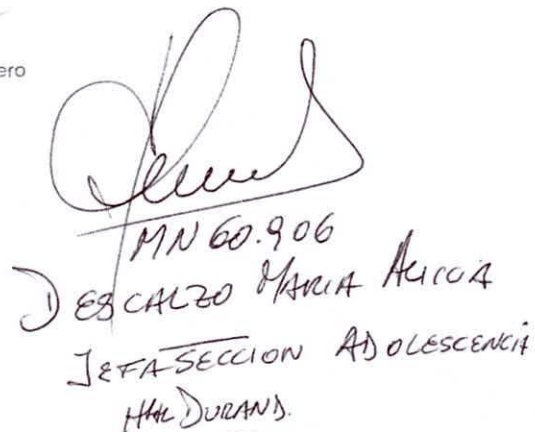 ero
MN 60.906
DESCALZO MARIA ALICIA
JEFA SECCION ADOLESCENCIA
DURAND.